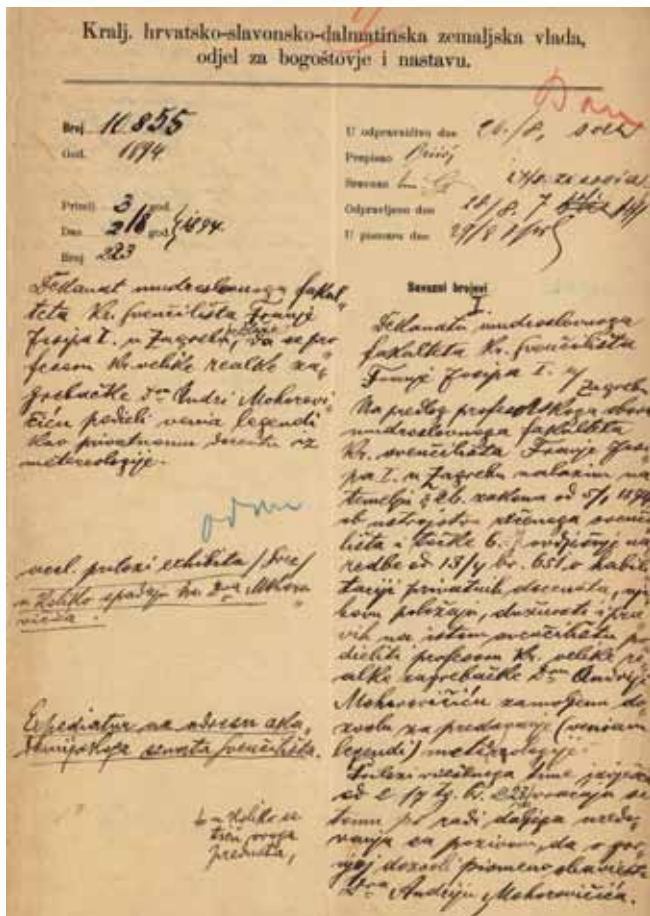 Kralj. hrvatsko-slavonsko-dalmatinska zemaljska vlada,
odjel za bogoštovje i nastavu.
Broj 10.855
God. 1894
Primlj. 3 god.
Dne 2/8 god. 1894.
Broj 223
U odpravničtvo dne 26./8.
Prepisao
Sravnao
Odpravljeno dne 28/8. 7
U pismaru dne 29/8
Dekanat mudroslovnoga fakul-
teta kr. sveučilišta Franje
Josipa I. u Zagrebu, da se pro-
fesoru kr. velike realke za-
grebačke Dru Andri Mohorovi-
čiću podieli venia legendi
kao privatnomu docentu iz
meteorologije.
prilozi exhibita
u koliko spadaju na Dra Mohoro
vičića.
na adresu aka-
demijskoga senata sveučilišta.
u koliko se
tiču ovoga
predmeta,
Savezni brojevi
I.
Dekanatu mudroslovnoga
fakulteta kr. sveučilišta
Franje Josipa I. u
Zagrebu
Na predlog profesorskoga sbora
mudroslovnoga fakulteta
kr. sveučilišta Franje Josi
pa I. u Zagrebu nalazim na
temelju § 26. zakona od 5/1 1894
ob ustrojstvu sveuči
lišta i točke 6. na
redbe od 13/4 br. 651. o habili
taciji privatnih docenata, nji
hovu položaju, dužnosti i pra
vih na istom sveučilištu po
dieliti profesoru kr. velike re
alke zagrebačke Dru Andriji
Mohorovičiću zamoljenu do
zvolu za predavanje (veniam
legendi) meteorologije.
Prilozi
od 2/7 tg. br. 223 vraćaju se
tomu radi daljega uredo
vanja sa pozivom, da o gor
njoj dozvoli pismeno obaviesti
Dra Andriju Mohorovičića.